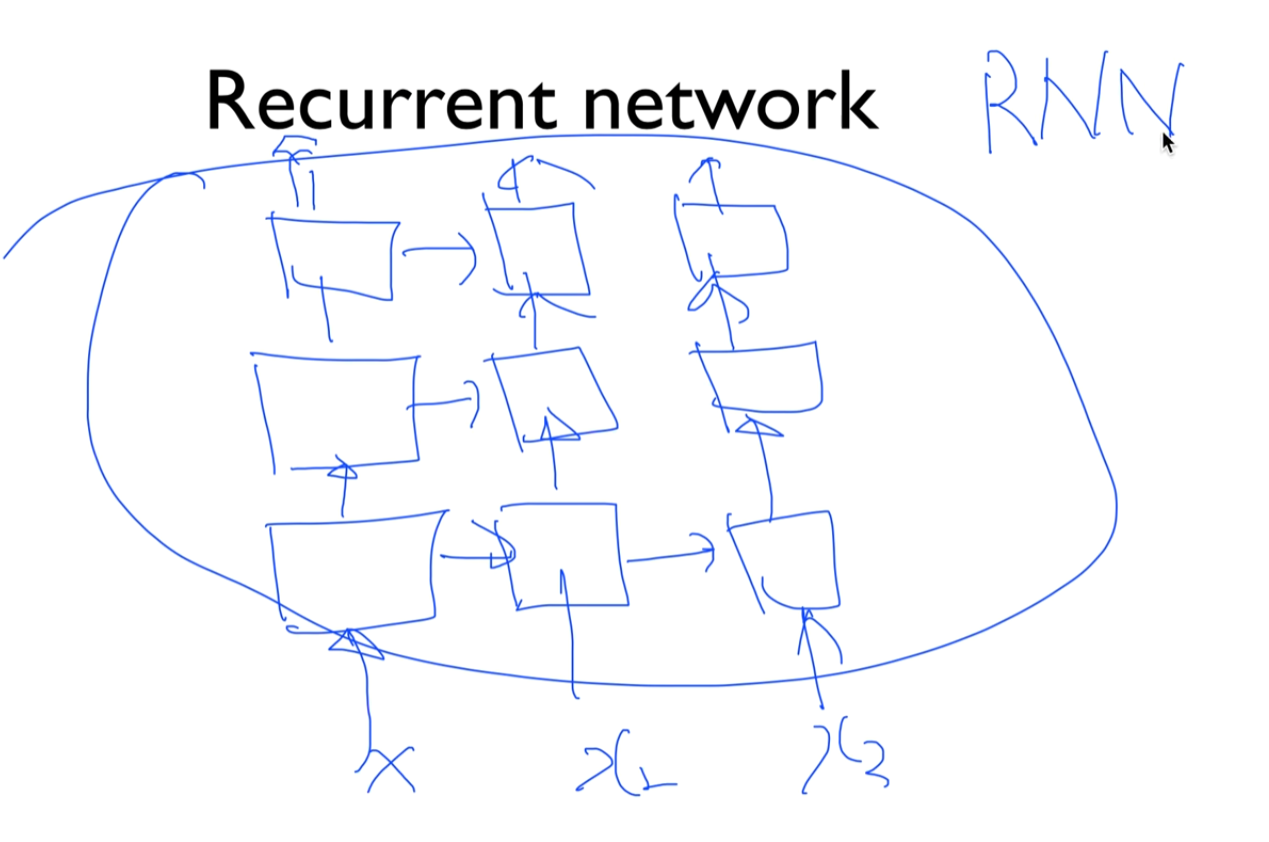 Recurrent network RNN
x x₂ x₃